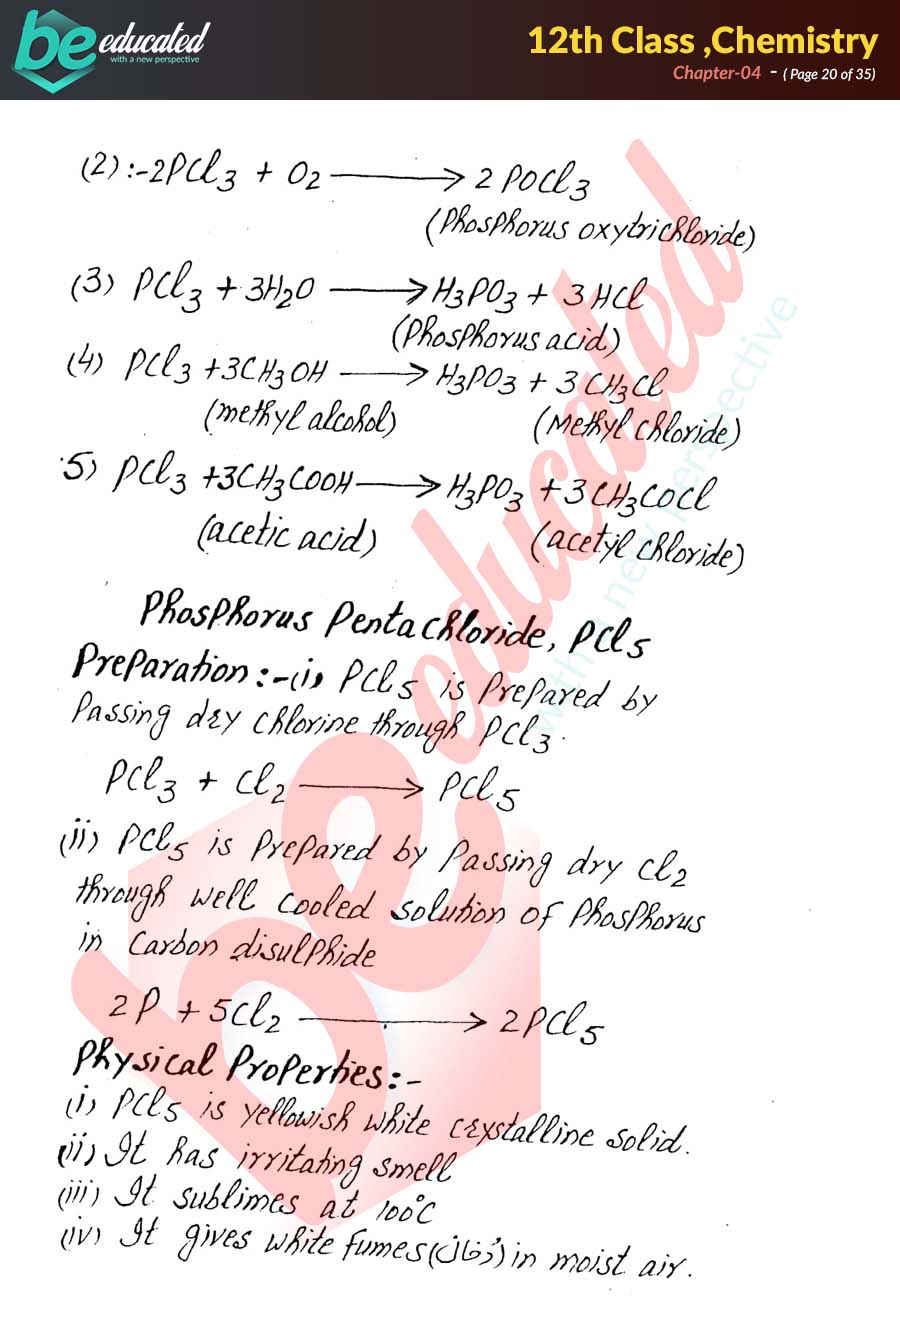 be educated
with a new perspective
12th Class ,Chemistry
Chapter-04 - ( Page 20 of 35)
(2) :- 2PCl3 + O2 ⟶ 2 POCl3
(Phosphorus oxytrichloride)
(3) PCl3 + 3H2O ⟶ H3PO3 + 3 HCl
(Phosphorus acid)
(4) PCl3 +3CH3OH ⟶ H3PO3 + 3 CH3Cl
(methyl alcohol) (Methyl chloride)
5) PCl3 +3CH3COOH ⟶ H3PO3 + 3 CH3COCl
(acetic acid) (acetyl chloride)
Phosphorus Pentachloride, PCl5
Preparation :- (i) PCl5 is prepared by
Passing dry chlorine through PCl3.
PCl3 + Cl2 ⟶ PCl5
(ii) PCl5 is Prepared by Passing dry Cl2
through well cooled solution of Phosphorus
in Carbon disulphide
2P + 5Cl2 ⟶ 2PCl5
Physical Properties :-
(i) PCl5 is yellowish white crystalline solid.
(ii) It has irritating smell
(iii) It sublimes at 100°C
(iv) It gives white fumes ( ) in moist air.
be educated
with a new perspective